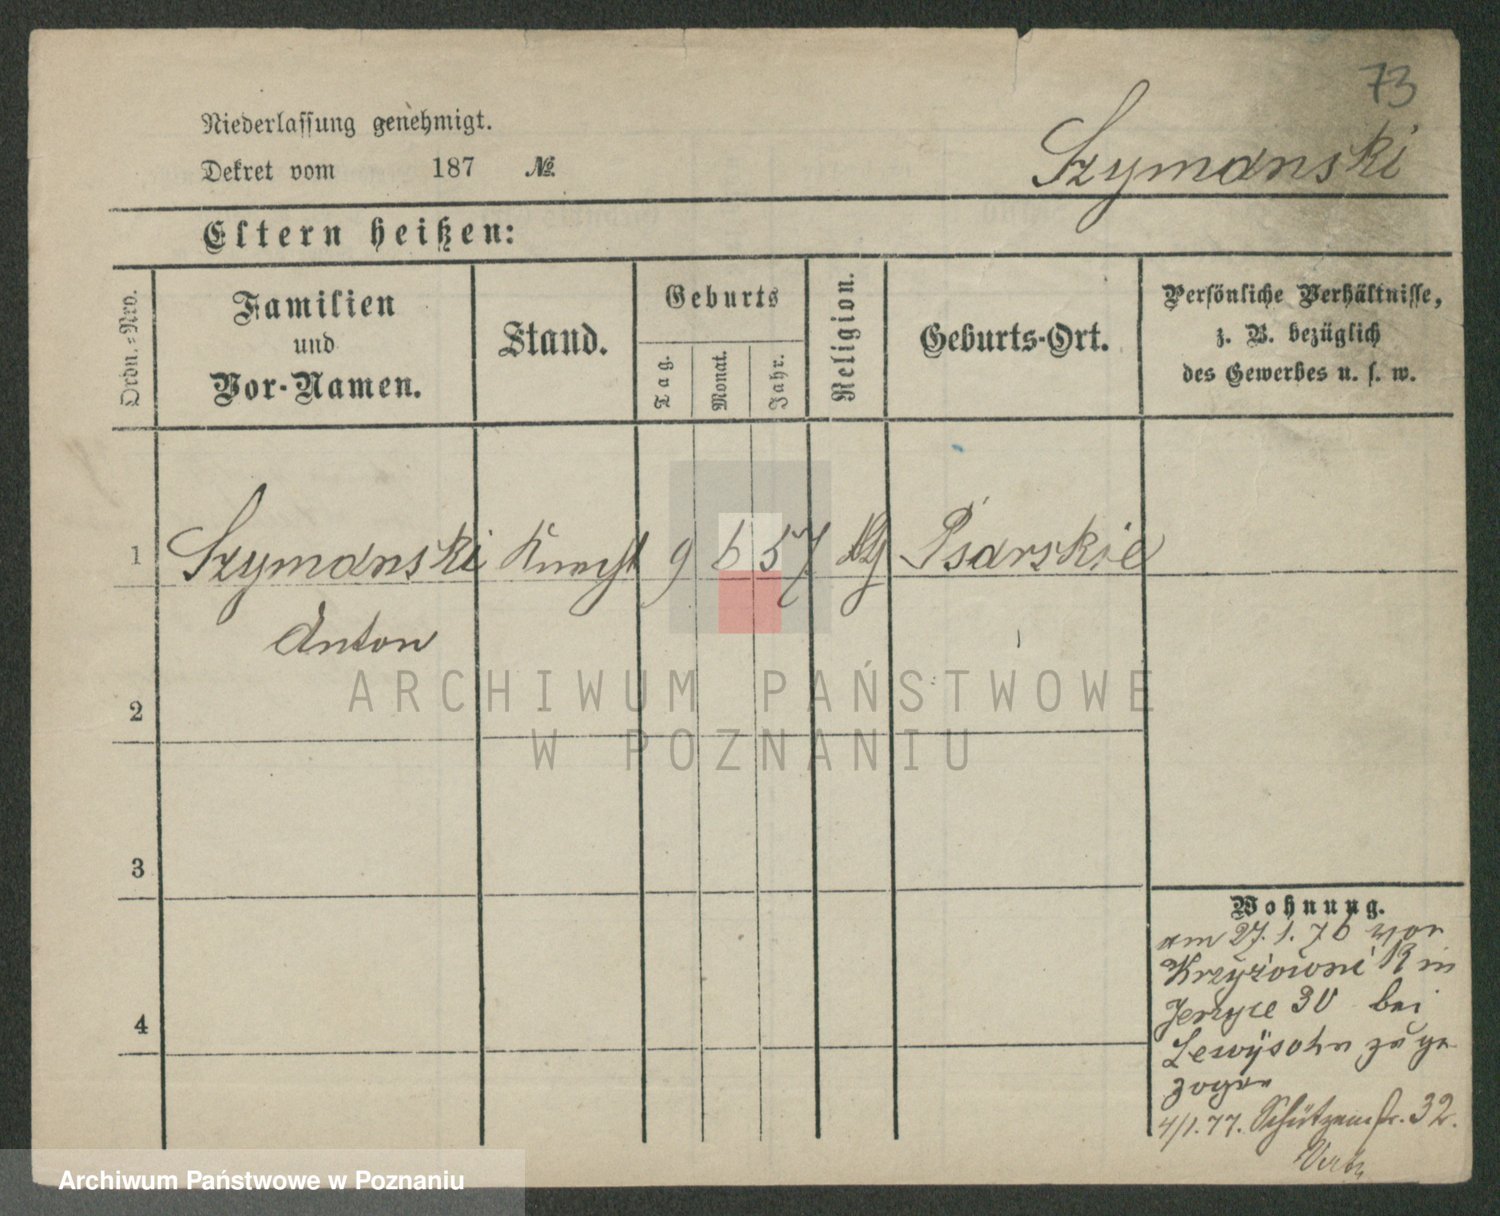 73
Niederlassung genehmigt.
Dekret vom 187 №
Szymanski
Eltern heißen:
Ordn.-Nro.
Familien
und
Vor-Namen.
Stand.
Geburts
Tag.
Monat.
Jahr.
Religion.
Geburts-Ort.
Persönliche Verhältnisse,
z. B. bezüglich
des Gewerbes u. s. w.
1 Szymanski Knecht 9 6 57 Psarskie
Anton
2
3
4
Wohnung.
am 27.1.76 von
in
Jerzyce 30 bei
Lewÿsohn zuge
zogen
4/1.77. Schützenstr. 32.
ARCHIWUM PAŃSTWOWE
W POZNANIU
Archiwum Państwowe w Poznaniu